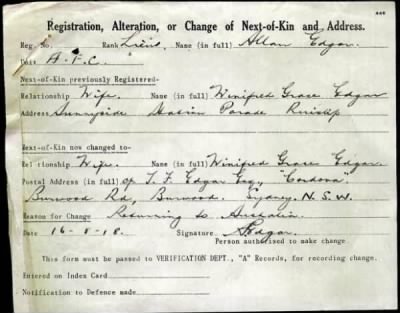 Registration, Alteration, or Change of Next-of-Kin and Address.
Reg. No. Rank Lieut. Name (in full) Allan Edgar.
Unit A.F.C.
Next-of-Kin previously Registered-
Relationship Wife. Name (in full) Winifred Grace Edgar
Address Sunnyside Station Parade Ruislip
Next-of-Kin now changed to-
Relationship Wife. Name (in full) Winifred Grace Edgar.
Postal Address (in full) c/o T. F. Edgar Esq., "Cordova"
Burwood Rd, Burwood. Sydney. N.S.W.
Reason for Change Returning to Australia.
Date 16-8-18. Signature AEdgar.
Person authorised to make change.
This form must be passed to VERIFICATION DEPT., "A" Records, for recording change.
Entered on Index Card
Notification to Defence made